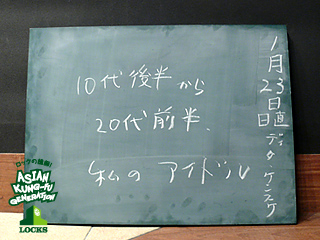 10代後半から
20代前半、
私の アイドル
1月23日
日直 ディクケンスケ
ロックの授業!
ASIAN
KUNG-FU
GENERATION
LOCKS